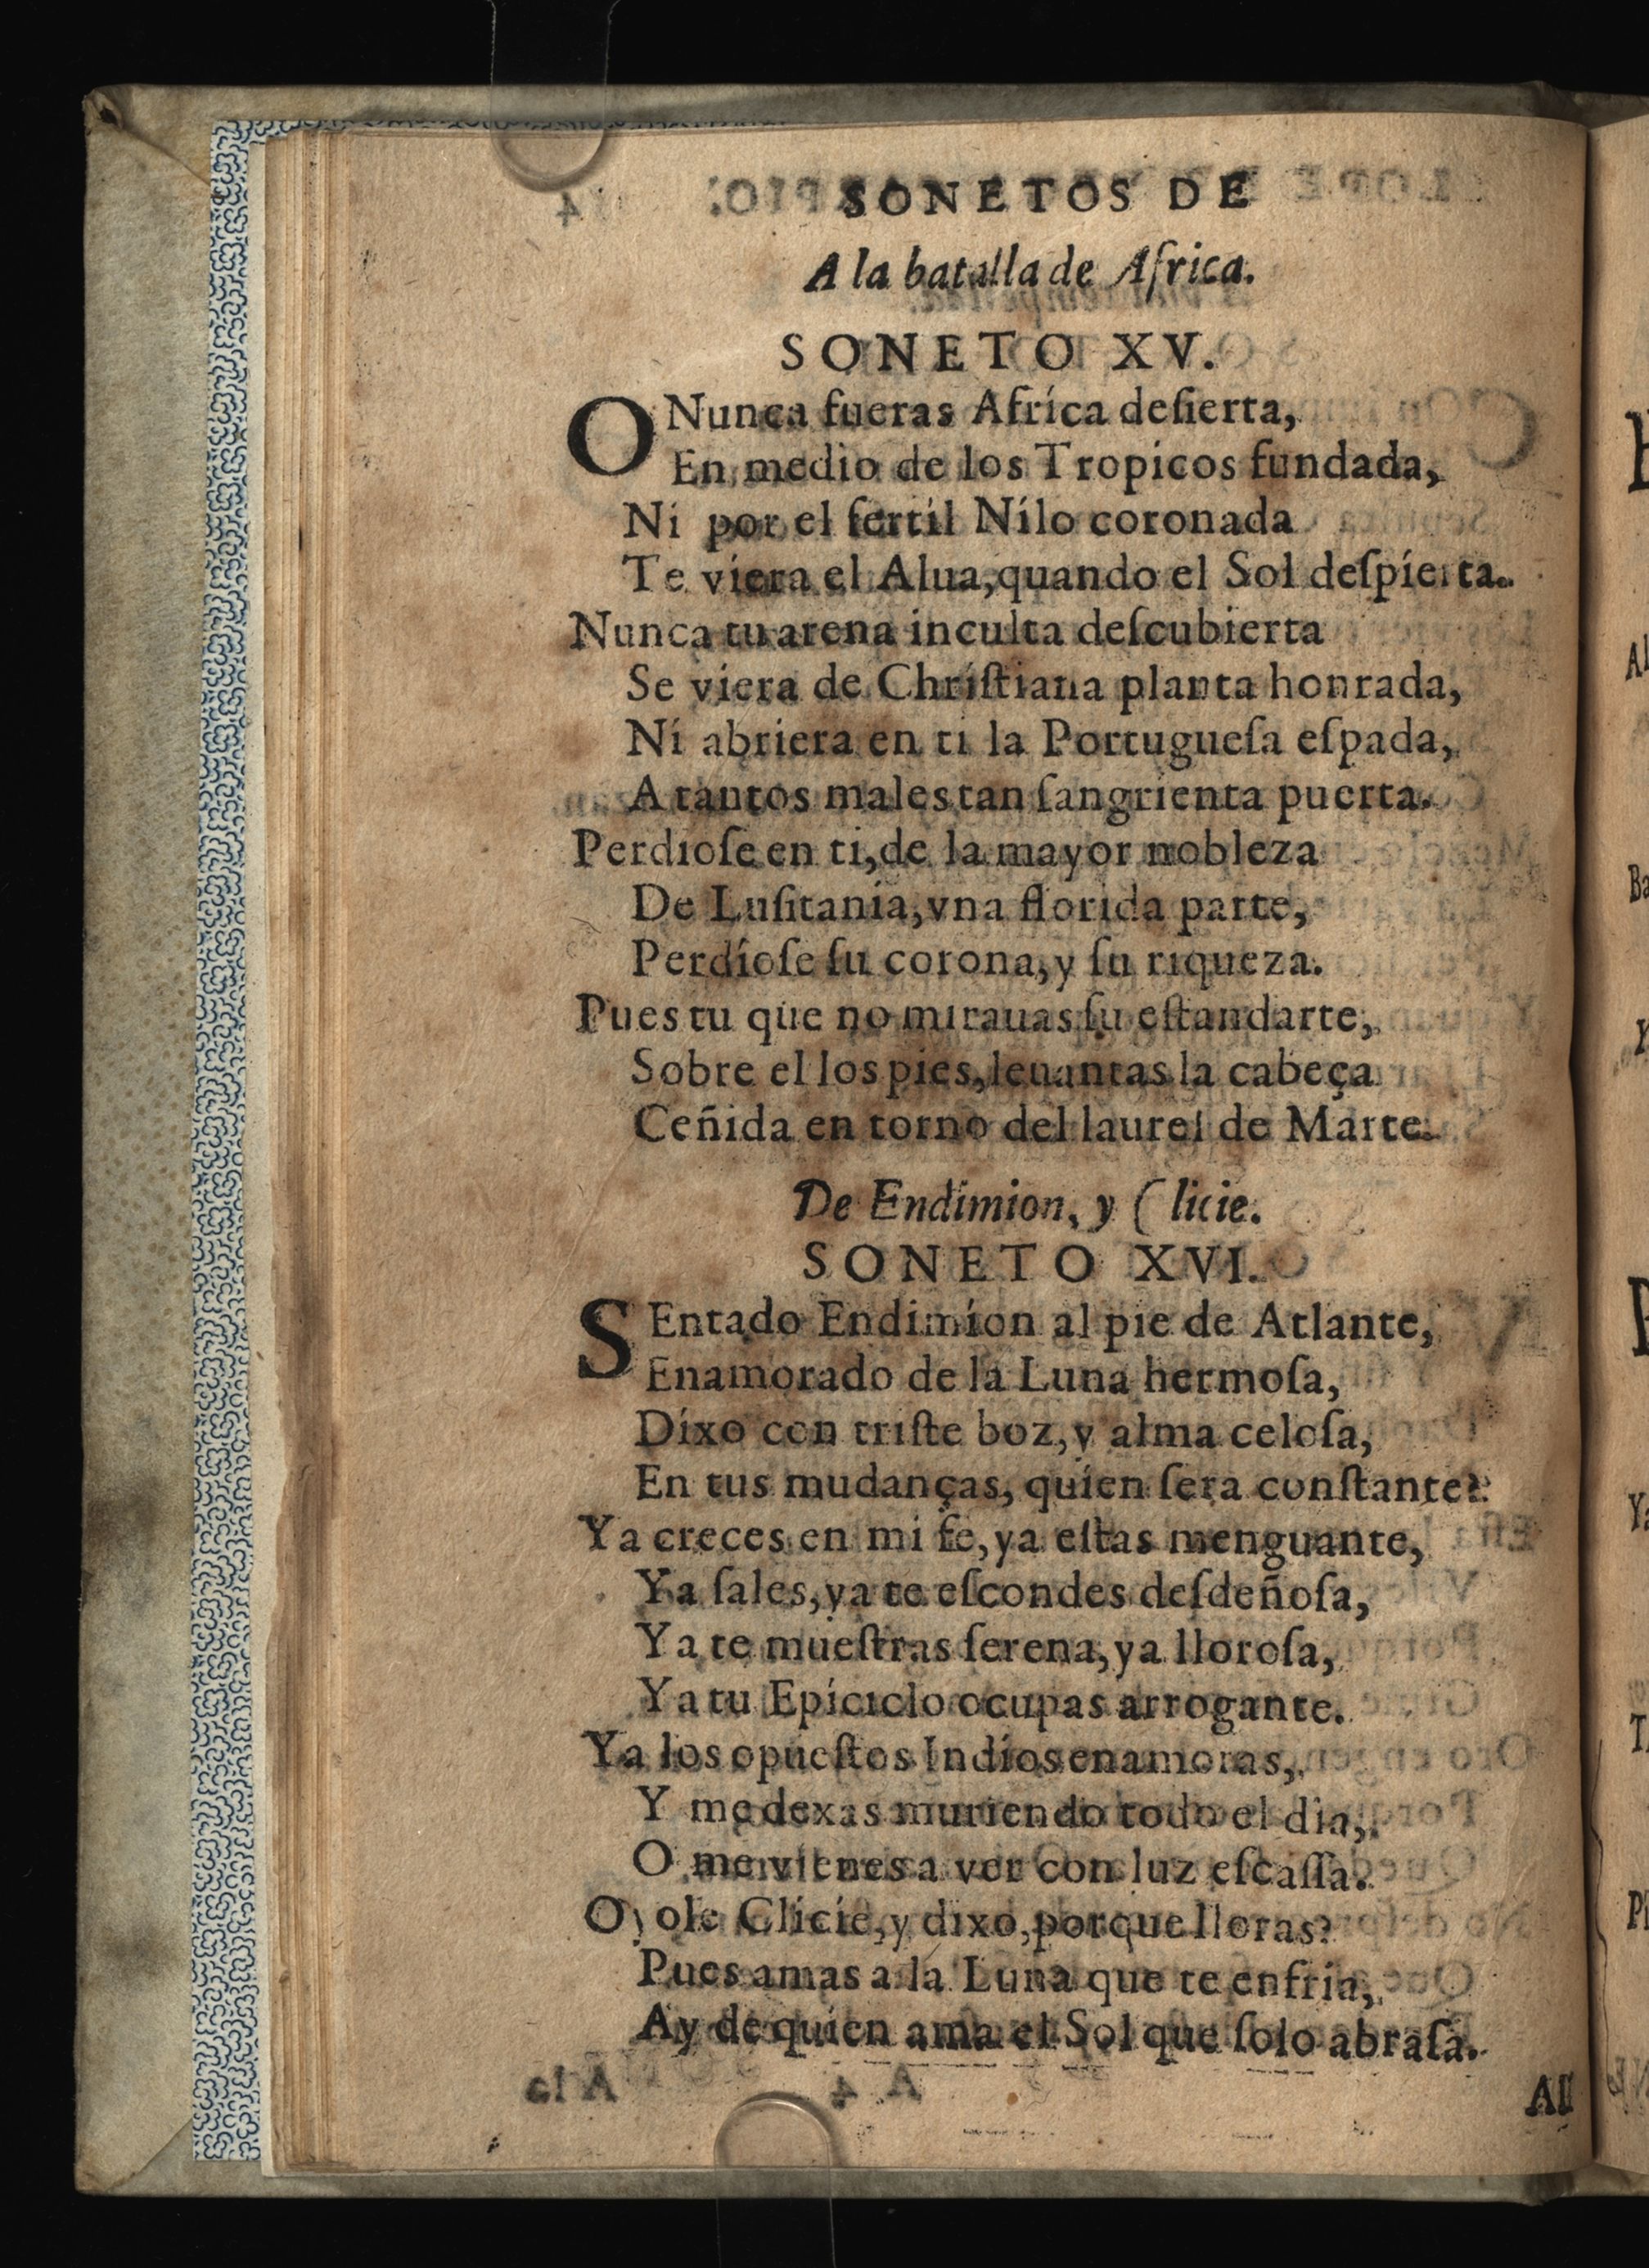 SONETOS DE
A la batalla de Africa.
SONETO XV.
O Nunca fueras Africa desierta,
En medio de los Tropicos fundada,
Ni por el fertil Nilo coronada
Te viera el Alua, quando el Sol deſpierta.
Nunca tu arena inculta deſcubierta
Se viera de Chriſtiana planta honrada,
Ni abriera en ti la Portugueſa eſpada,
A tantos males tan ſangrienta puerta.
Perdioſe en ti, de la mayor nobleza
De Luſitania, vna florida parte,
Perdioſe ſu corona, y ſu riqueza.
Pues tu que no mirauas ſu eſtandarte,
Sobre el los pies, leuantas la cabeça
Ceñida en torno del laurel de Marte.
De Endimion, y Clicie.
SONETO XVI.
SEntado Endimion al pie de Atlante,
Enamorado de la Luna hermoſa,
Dixo con triſte boz, y alma celoſa,
En tus mudanças, quien ſera conſtante?
Ya creces en mi fe, ya eſtas menguante,
Ya ſales, ya te eſcondes deſdeñoſa,
Ya te mueſtras ſerena, ya lloroſa,
Ya tu Epiciclo ocupas arrogante.
Ya los opueſtos Indios enamoras,
Y me dexas muriendo todo el dia,
O me vienes a ver con luz eſcaſſa.
Oyole Clicie, y dixo, porque lloras?
Pues amas a la Luna que te enfria,
Ay de quien ama el Sol que ſolo abraſa.
Al